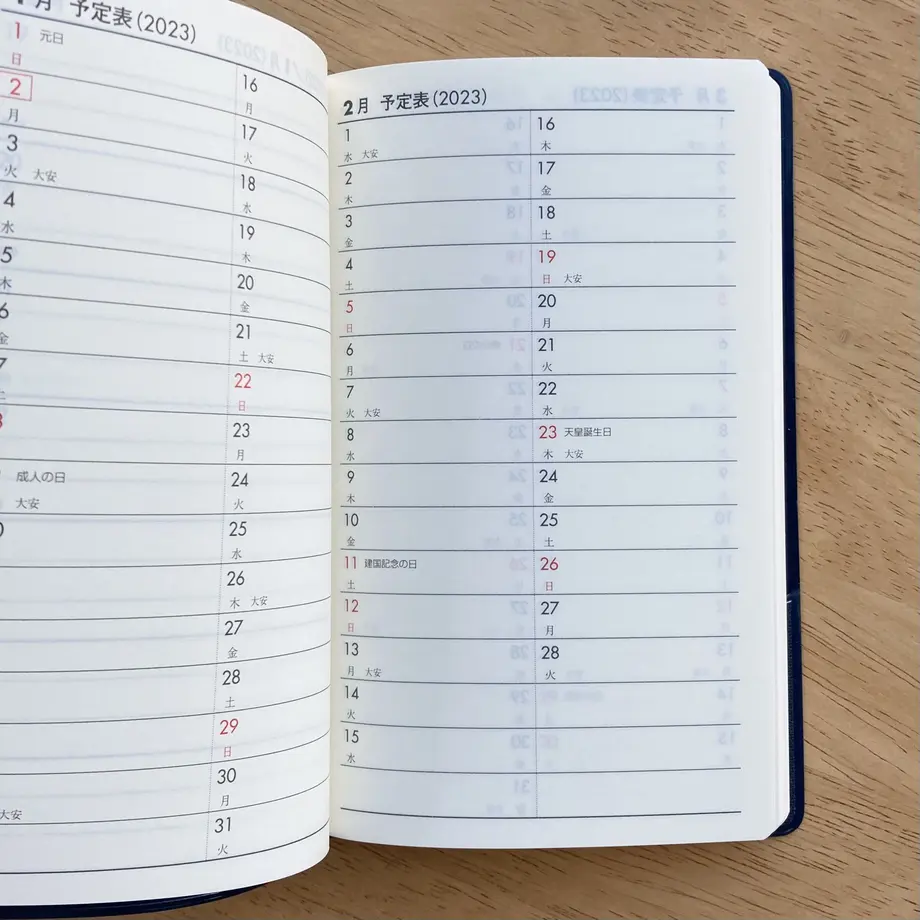 1月 予定表(2023)
1 元日
日
2
月
3
火 大安
4
水
5
木
6
金
7
土
8
成人の日
大安
大安
16
月
17
火
18
水
19
木
20
金
21
土 大安
22
日
23
月
24
火
25
水
26
木 大安
27
金
28
土
29
日
30
月
31
火
2月 予定表(2023)
1
水 大安
2
木
3
金
4
土
5
日
6
月
7
火 大安
8
水
9
木
10
金
11 建国記念の日
土
12
日
13
月 大安
14
火
15
水
16
木
17
金
18
土
19
日 大安
20
月
21
火
22
水
23 天皇誕生日
木 大安
24
金
25
土
26
日
27
月
28
火